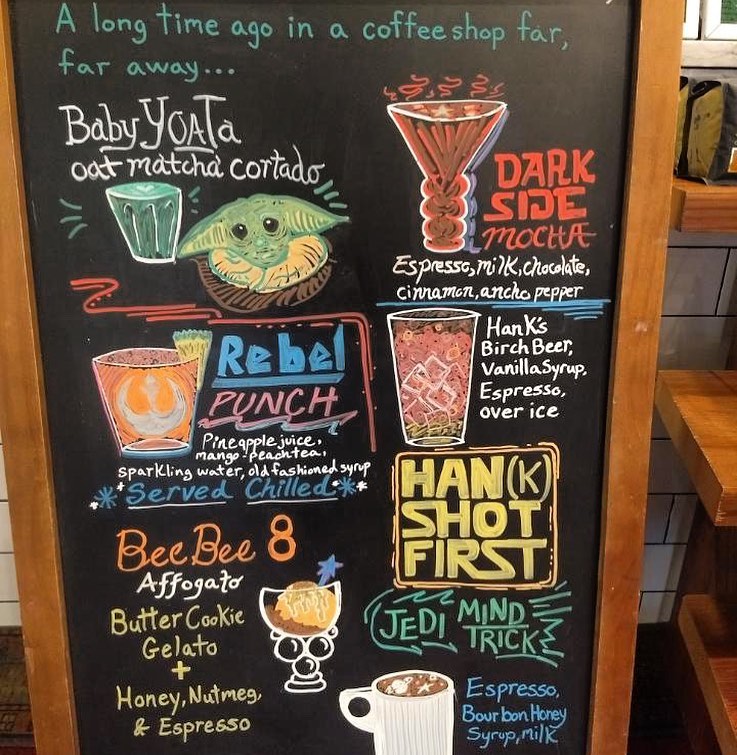 A long time ago in a coffee shop far,
far away...
Baby YOATa
oat matcha cortado
DARK
SIDE
MOCHA
Espresso, milk, chocolate,
cinnamon, ancho pepper
Rebel
PUNCH
Pineapple juice,
mango-peach tea,
sparkling water, old fashioned syrup
*Served Chilled*
Hank's
Birch Beer,
Vanilla Syrup,
Espresso,
over ice
HAN(K)
SHOT
FIRST
BeeBee 8
Affogato
Butter Cookie
Gelato
+
Honey, Nutmeg,
& Espresso
JEDI MIND
TRICK
Espresso,
Bourbon Honey
Syrup, milk